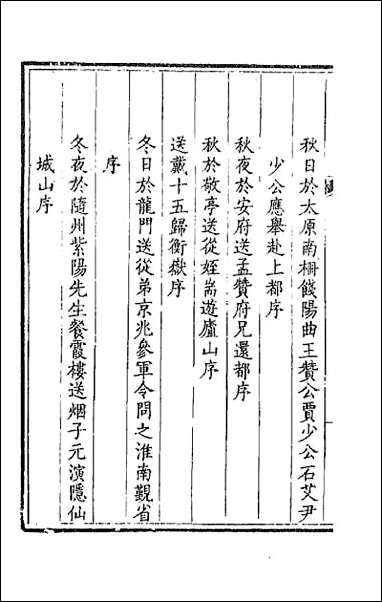 秋日於太原南柵餞陽曲王贊公賈少公石艾尹
少公應舉赴上都序
秋夜於安府送孟贊府兄還都序
秋於敬亭送從姪耑遊廬山序
送戴十五歸衡嶽序
冬日於龍門送從弟京兆參軍令問之淮南覲省
序
冬夜於隨州紫陽先生餐霞樓送烟子元演隱仙
城山序